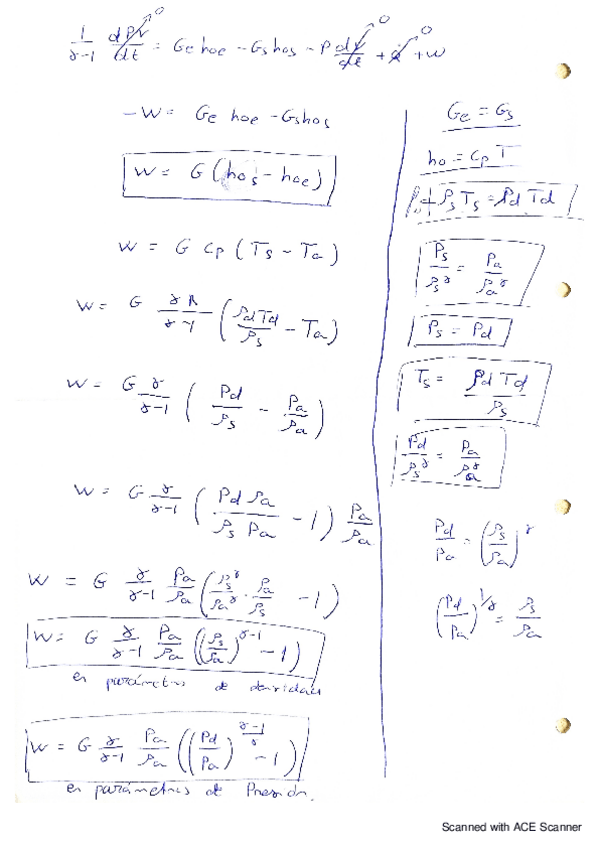 1/(γ-1) dPV/dt = Ge hoe - Gs hos - P dV/dt + Q̇ + W
0 0 0
-W = Ge hoe - Gs hos
W = G (hos - hoe)
W = G Cp (Ts - Ta)
W = G γR/(γ-1) (ρd Td/ρs - Ta)
W = G γ/(γ-1) (Pd/ρs - Pa/ρa)
W = G γ/(γ-1) (Pd ρa/(ρs Pa) - 1) Pa/ρa
W = G γ/(γ-1) Pa/ρa (ρs^γ/ρa^γ · ρa/ρs - 1)
W = G γ/(γ-1) Pa/ρa ((ρs/ρa)^(γ-1) - 1)
en parámetros de densidad
W = G γ/(γ-1) Pa/ρa ((Pd/Pa)^((γ-1)/γ) - 1)
en parámetros de Presión.
Ge = Gs
ho = Cp T
ρs Ts = ρd Td
Ps/ρs^γ = Pa/ρa^γ
Ps = Pd
Ts = ρd Td/ρs
Pd/ρs^γ = Pa/ρa^γ
Pd/Pa = (ρs/ρa)^γ
(Pd/Pa)^(1/γ) = ρs/ρa
Scanned with ACE Scanner